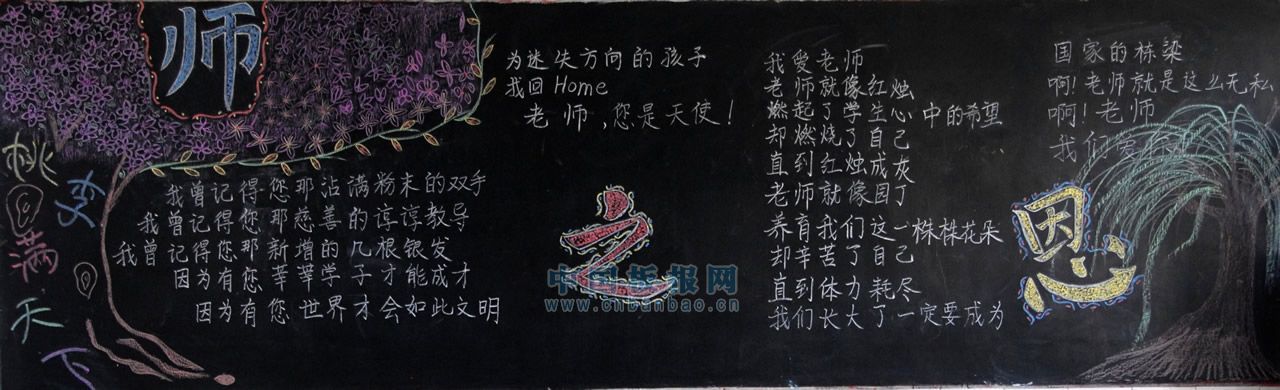 师
桃李满天下
我曾记得您那沾满粉末的双手
我曾记得您那慈善的谆谆教导
我曾记得您那新增的几根银发
因为有您莘莘学子才能成才
因为有您世界才会如此文明
为迷失方向的孩子
我回Home
老师,您是天使!
之
中国板报网
www.cnbanbao.cn
我爱老师
老师就像红烛
燃起了学生心中的希望
却燃烧了自己
直到红烛成灰
老师就像园丁
养育我们这一株株花朵
却辛苦了自己
直到体力耗尽
我们长大了一定要成为
国家的栋梁
啊!老师就是这么无私
啊!老师
我们
恩